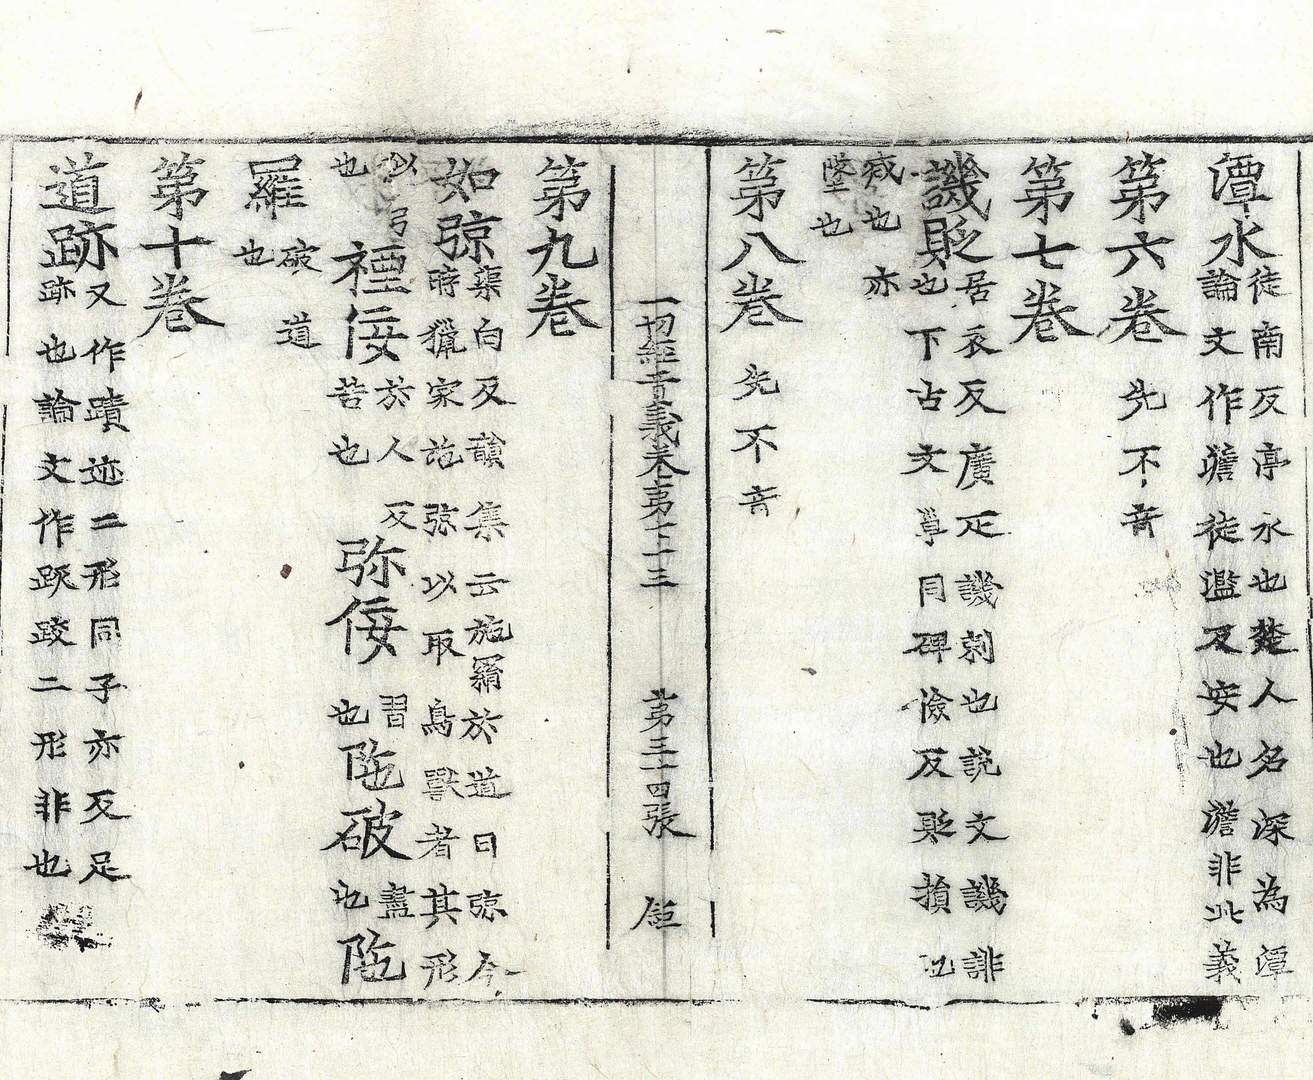 潭水 徒南反亭永也楚人名深為潭
論文作𤺺徒濫反安也澹非此義
第六卷 先不音
第七卷
譏貶 居衣反廣疋譏刺也說文譏誹
也下古文𠭥同碑儉反貶損也
亦
墜也
第八卷 先不音
一切經音義卷第七十三 第三十四張 鉅
第九卷
如弶 渠向反韻集云施罥於道曰弶今
時獵家施弶以取鳥獸者其形
以弓
也 禋佞 於人反
苦也 弥佞 習
也 陁破 盡
也 陁
羅 破道
也
第十卷
道跡 又作蹟迹二形同子亦反足
跡也論文作跃跤二形非也